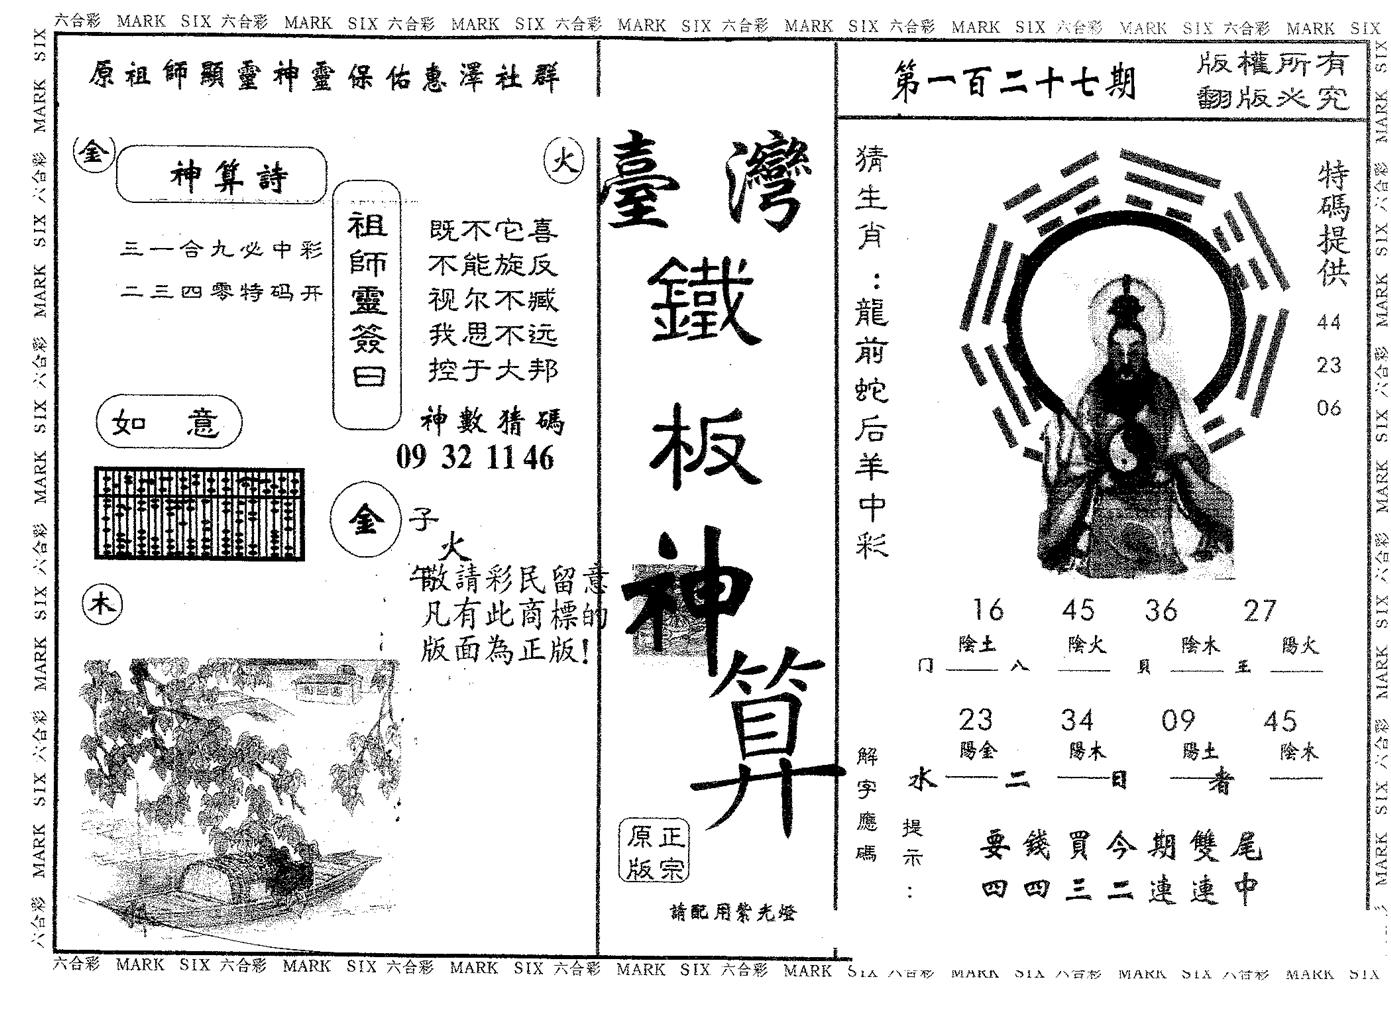 六合彩 MARK SIX 六合彩 MARK SIX 六合彩 MARK SIX 六合彩 MARK SIX 六合彩 MARK SIX 六合彩 MARK SIX 六合彩 MARK SIX 六合彩 MARK SIX
原祖師顯靈神靈保佑惠澤社群
金
神算詩
火
三一合九必中彩
二三四零特码开
祖師靈簽曰
既不它喜
不能旋反
视尔不臧
我思不远
控于大邦
神數猜碼
09 32 11 46
如意
金
子
火
午
敬請彩民留意
凡有此商標的
版面為正版!
木
臺灣
鐵
板
神
算
正宗
原版
請配用紫光燈
第一百二十七期
版權所有
翻版必究
猜生肖:龍前蛇后羊中彩
特碼提供
44
23
06
16 45 36 27
陰土 陰火 陰木 陽火
门 八 貝 王
23 34 09 45
陽金 陽木 陽土 陰木
水 二 日 者
解字應碼
提示:
要錢買今期雙尾
四四三二連連中
六合彩 MARK SIX 六合彩 MARK SIX 六合彩 MARK SIX 六合彩 MARK SIX 六合彩 MARK SIX 六合彩 MARK SIX 六合彩 MARK SIX 六合彩 MARK SIX